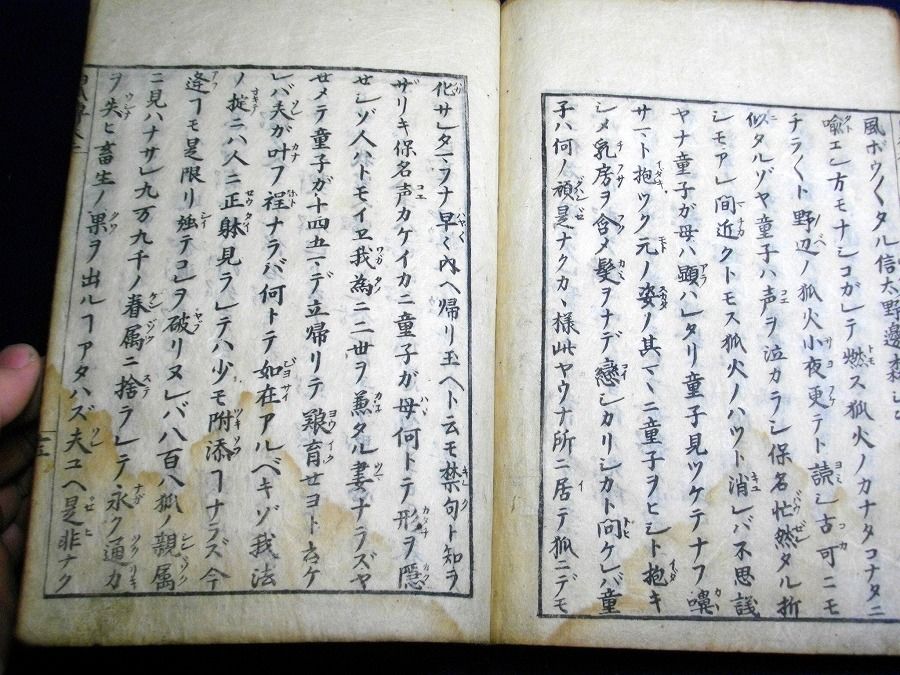 風ボウ〱タル信太野邊森
喩エ」方モナシコガ」テ燃ス狐火ノカナタコナタニ
チラ〱ト野辺ノ狐火小夜更テト読シ古可ニモ
似タルゾヤ童子ハ声ヲ泣カラシ保名忙然タル折
シモア」間近クトモス狐火ノハツト消」バ不思議
ヤナ童子ガ母ハ顕ハ」タリ童子見ツケテナフ嚊
サマト抱ツク元ノ姿ノ其マヽニ童子ヲヒシト抱キ
シメ乳房ヲ含メ髪ヲナデ戀シカリシカト問ケ」バ童
子ハ何ノ頑是ナクカヽ様此ヤウナ所ニ居テ狐ニデモ
化サ」タマフナ早ク内ヘ帰リ玉ヘト云モ禁句ト知ラ
ザリキ保名声カケイカニ童子ガ母何トテ形ヲ隠
セシゾ人ハトモイヱ我為ニ二世ヲ兼タル妻ナラズヤ
セメテ童子ガ十四五マデ立帰リテ養育セヨト云ケ
」バ夫ガ叶フ程ナラバ何トテ如在アルベキゾ我法
ノ掟ニハ人ニ正躰見ラ」テハ少モ附添フナラズ今
逢フモ是限リ強テコ」ヲ破リヌ」バ八百八狐ノ親属
ニ見ハナサ」九万九千ノ眷属ニ捨ラ」テ永ク通力
ヲ失ヒ畜生ノ果ヲ出ルヿアタハズ夫ユヘ是非ナク